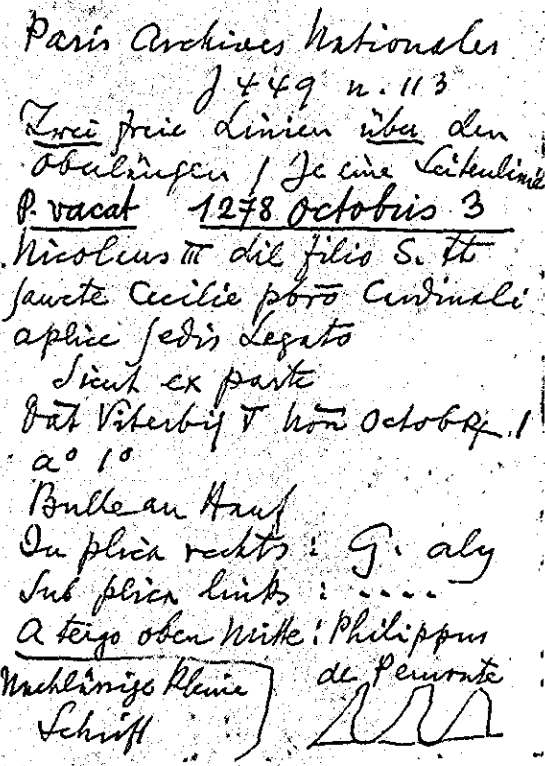 Paris Archives Nationales
J 449 n. 113
Zwei freie Linien über den
Oberlängen / Je eine Seitenlinie
P. vacat 1278 Octobris 3
Nicolaus III dil filio S. tt
sancte Cecilie pbro Cardinali
aplice sedis Legato
Sicut ex parte
Dat Viterbii V Non Octobr
a° 1°
Bulle an Hanf
In plica rechts: G. aly
Sub plica links: ....
A tergo oben Mitte: Philippus
Nachlässige kleine de
Schrift